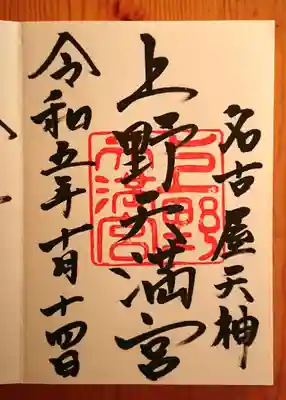 名古屋天神
上野天満宮
上野天満宮
令和五年十月十四日